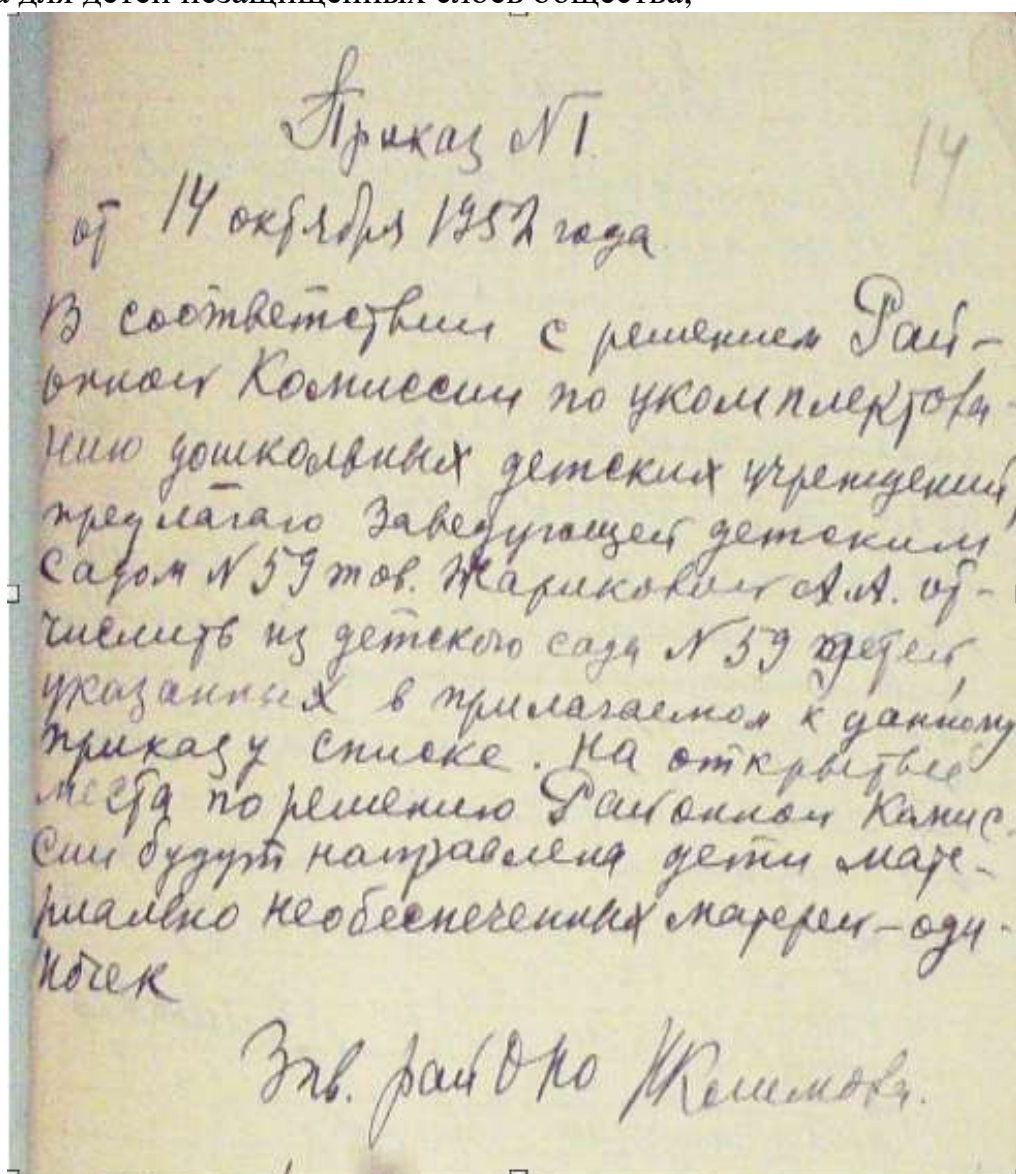 для детей незащищенных слоев общества,
Приказ N 1.
14
от 14 октября 1952 года
В соответствии с решением Рай-
онной Комиссии по укомплектова-
нию дошкольных детских учреждений,
предлагаю Заведующей детским
садом N 59 тов. Жариковой А.А. от-
числить из детского сада N 59 детей,
указанных в прилагаемом к данному
приказу списке. На открытые
места по решению Районной Комис-
сии будут направлена дети мате-
риально необеспеченных матерей-оди-
ночек
Зав. рай ОНО